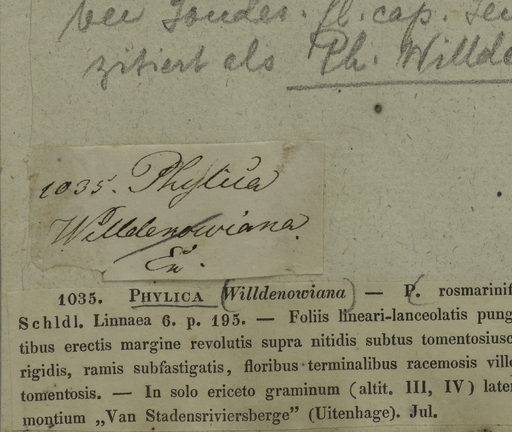 bei Sonder. fl. cap.
zitiert als Ph. Willde
1035. Phylica
Willdenowiana
1035. PHYLICA (Willdenowiana) — P. rosmarinif
Schldl. Linnaea 6. p. 195. — Foliis lineari-lanceolatis pung
tibus erectis margine revolutis supra nitidis subtus tomentosiusc
rigidis, ramis subfastigatis, floribus terminalibus racemosis villo
tomentosis. — In solo ericeto graminum (altit. III, IV) later
montium „Van Stadensriviersberge” (Uitenhage). Jul.